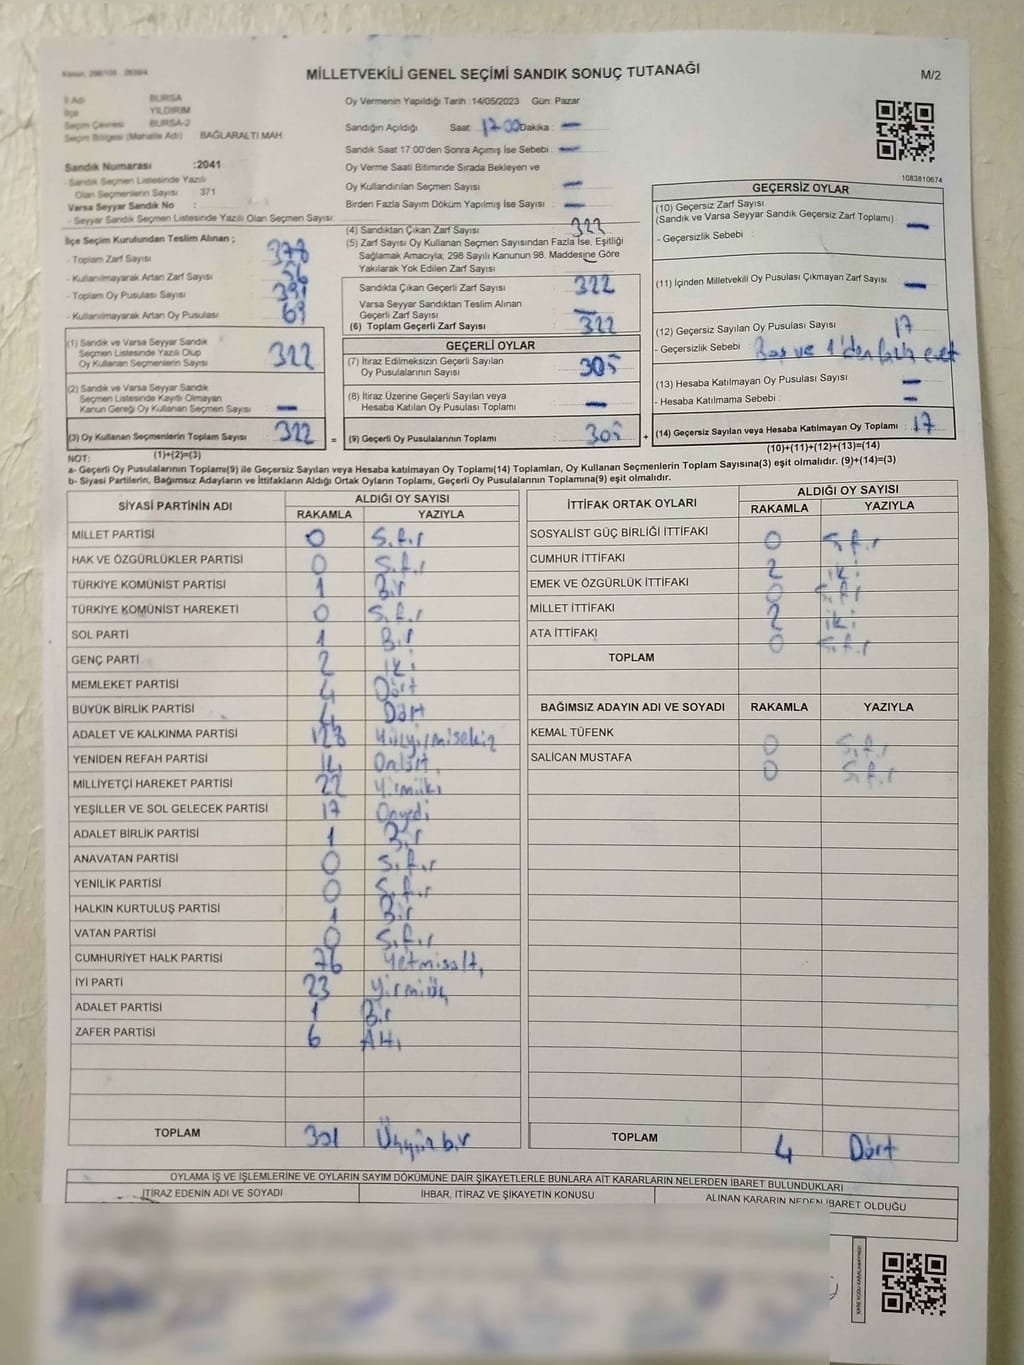 MİLLETVEKİLİ GENEL SEÇİMİ SANDIK SONUÇ TUTANAĞI
M/2
İl Adı BURSA
İlçe YILDIRIM
Seçim Çevresi BURSA-2
Seçim Bölgesi (Mahalle Adı) BAĞLARALTI MAH.
Sandık Numarası :2041
- Sandık Seçmen Listesinde Yazılı
Olan Seçmenlerin Sayısı 371
Varsa Seyyar Sandık No :
- Seyyar Sandık Seçmen Listesinde Yazılı Olan Seçmen Sayısı:
Oy Vermenin Yapıldığı Tarih :14/05/2023 Gün: Pazar
Sandığın Açıldığı Saat: 17-00 Dakika : —
Sandık Saat 17.00'den Sonra Açımış İse Sebebi : —
Oy Verme Saati Bitiminde Sırada Bekleyen ve
Oy Kullandırılan Seçmen Sayısı : —
Birden Fazla Sayım Döküm Yapılmış İse Sayısı : —
1083810674
İlçe Seçim Kurulundan Teslim Alınan ;
- Toplam Zarf Sayısı : 378
- Kullanılmayarak Artan Zarf Sayısı : 56
- Toplam Oy Pusulası Sayısı : 391
- Kullanılmayarak Artan Oy Pusulası : 69
(1) Sandık ve Varsa Seyyar Sandık
Seçmen Listesinde Yazılı Olup
Oy Kullanan Seçmenlerin Sayısı : 322
(2) Sandık ve Varsa Seyyar Sandık
Seçmen Listesinde Kayıtlı Olmayan
Kanun Gereği Oy Kullanan Seçmen Sayısı : —
(3) Oy Kullanan Seçmenlerin Toplam Sayısı : 322
(1)+(2)=(3)
(4) Sandıktan Çıkan Zarf Sayısı : 322
(5) Zarf Sayısı Oy Kullanan Seçmen Sayısından Fazla İse, Eşitliği
Sağlamak Amacıyla; 298 Sayılı Kanunun 98. Maddesine Göre
Yakılarak Yok Edilen Zarf Sayısı : —
Sandıkta Çıkan Geçerli Zarf Sayısı : 322
Varsa Seyyar Sandıktan Teslim Alınan
Geçerli Zarf Sayısı : —
(6) Toplam Geçerli Zarf Sayısı : 322
GEÇERLİ OYLAR
(7) İtiraz Edilmeksizin Geçerli Sayılan
Oy Pusulalarının Sayısı : 305
(8) İtiraz Üzerine Geçerli Sayılan veya
Hesaba Katılan Oy Pusulası Toplamı : —
= (9) Geçerli Oy Pusulalarının Toplamı : 305
GEÇERSİZ OYLAR
(10) Geçersiz Zarf Sayısı
(Sandık ve Varsa Seyyar Sandık Geçersiz Zarf Toplamı) : —
- Geçersizlik Sebebi :
(11) İçinden Milletvekili Oy Pusulası Çıkmayan Zarf Sayısı : —
(12) Geçersiz Sayılan Oy Pusulası Sayısı : 17
- Geçersizlik Sebebi : Boş ve 1'den fazla evet
(13) Hesaba Katılmayan Oy Pusulası Sayısı : —
- Hesaba Katılmama Sebebi : —
+ (14) Geçersiz Sayılan veya Hesaba Katılmayan Oy Toplamı : 17
(10)+(11)+(12)+(13)=(14)
NOT:
a- Geçerli Oy Pusulalarının Toplamı(9) ile Geçersiz Sayılan veya Hesaba katılmayan Oy Toplamı(14) Toplamları, Oy Kullanan Seçmenlerin Toplam Sayısına(3) eşit olmalıdır. (9)+(14)=(3)
b- Siyasi Partilerin, Bağımsız Adayların ve İttifakların Aldığı Ortak Oyların Toplamı, Geçerli Oy Pusulalarının Toplamına(9) eşit olmalıdır.
SİYASİ PARTİNİN ADI ALDIĞI OY SAYISI
RAKAMLA YAZIYLA
MİLLET PARTİSİ 0 Sıfır
HAK VE ÖZGÜRLÜKLER PARTİSİ 0 Sıfır
TÜRKİYE KOMÜNİST PARTİSİ 1 Bir
TÜRKİYE KOMÜNİST HAREKETİ 0 Sıfır
SOL PARTİ 1 Bir
GENÇ PARTİ 2 İki
MEMLEKET PARTİSİ 4 Dört
BÜYÜK BİRLİK PARTİSİ 4 Dört
ADALET VE KALKINMA PARTİSİ 128 Yüzyirmisekiz
YENİDEN REFAH PARTİSİ 14 Ondört
MİLLİYETÇİ HAREKET PARTİSİ 22 Yirmiiki
YEŞİLLER VE SOL GELECEK PARTİSİ 17 Onyedi
ADALET BİRLİK PARTİSİ 1 Bir
ANAVATAN PARTİSİ 0 Sıfır
YENİLİK PARTİSİ 0 Sıfır
HALKIN KURTULUŞ PARTİSİ 1 Bir
VATAN PARTİSİ 0 Sıfır
CUMHURİYET HALK PARTİSİ 76 Yetmişaltı
İYİ PARTİ 23 Yirmiüç
ADALET PARTİSİ 1 Bir
ZAFER PARTİSİ 6 Altı
TOPLAM 301 Üçyüzbir
İTTİFAK ORTAK OYLARI ALDIĞI OY SAYISI
RAKAMLA YAZIYLA
SOSYALİST GÜÇ BİRLİĞİ İTTİFAKI 0 Sıfır
CUMHUR İTTİFAKI 2 iki
EMEK VE ÖZGÜRLÜK İTTİFAKI 0 Sıfır
MİLLET İTTİFAKI 2 iki
ATA İTTİFAKI 0 Sıfır
TOPLAM
BAĞIMSIZ ADAYIN ADI VE SOYADI RAKAMLA YAZIYLA
KEMAL TÜFENK 0 Sıfır
SALİCAN MUSTAFA 0 Sıfır
TOPLAM 4 Dört
OYLAMA İŞ VE İŞLEMLERİNE VE OYLARIN SAYIM DÖKÜMÜNE DAİR ŞİKAYETLERLE BUNLARA AİT KARARLARIN NELERDEN İBARET BULUNDUKLARI
İTİRAZ EDENİN ADI VE SOYADI İHBAR, İTİRAZ VE ŞİKAYETİN KONUSU ALINAN KARARIN NEDEN İBARET OLDUĞU
KARE KODU KARALAMAYINIZ!